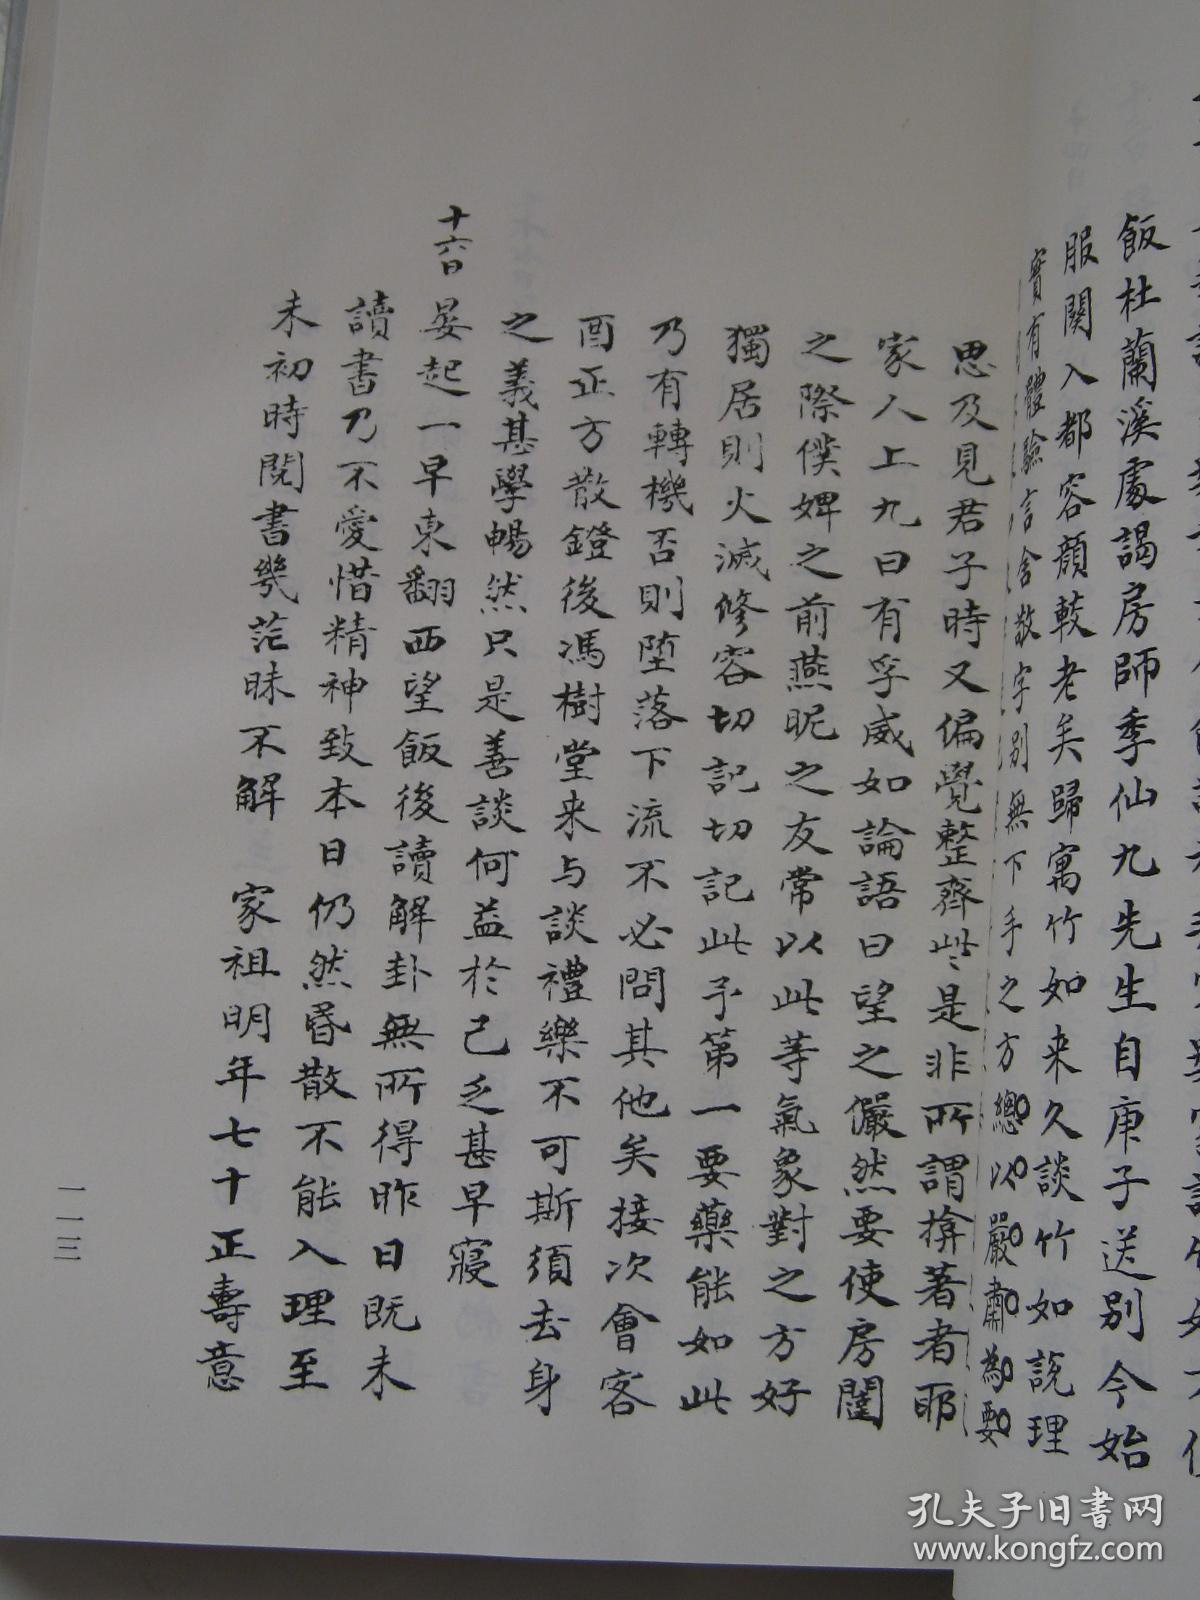 飯杜蘭溪處謁房師季仙九先生自庚子送别今始
服闋入都容顔較老矣歸寓竹如来久談竹如説理
實有體驗言舍敬字别無下手之方總以嚴肅為要
思及見君子時又偏覺整齊些是非所謂揜著者耶
家人上九曰有孚威如論語曰望之儼然要使房闥
之際僕婢之前燕昵之友常以此等氣象對之方好
獨居則火滅修容切記切記此予第一要藥能如此
乃有轉機否則墮落下流不必問其他矣接次會客
酉正方散鐙後馮樹堂来与談禮樂不可斯須去身
之義甚學暢然只是善談何益於己乏甚早寢
十六日
晏起一早東翻西望飯後讀解卦無所得昨日既未
讀書乃不愛惜精神致本日仍然昏散不能入理至
未初時閱書幾茫昧不解　家祖明年七十正壽意
一一三
孔夫子旧书网
www.kongfz.com